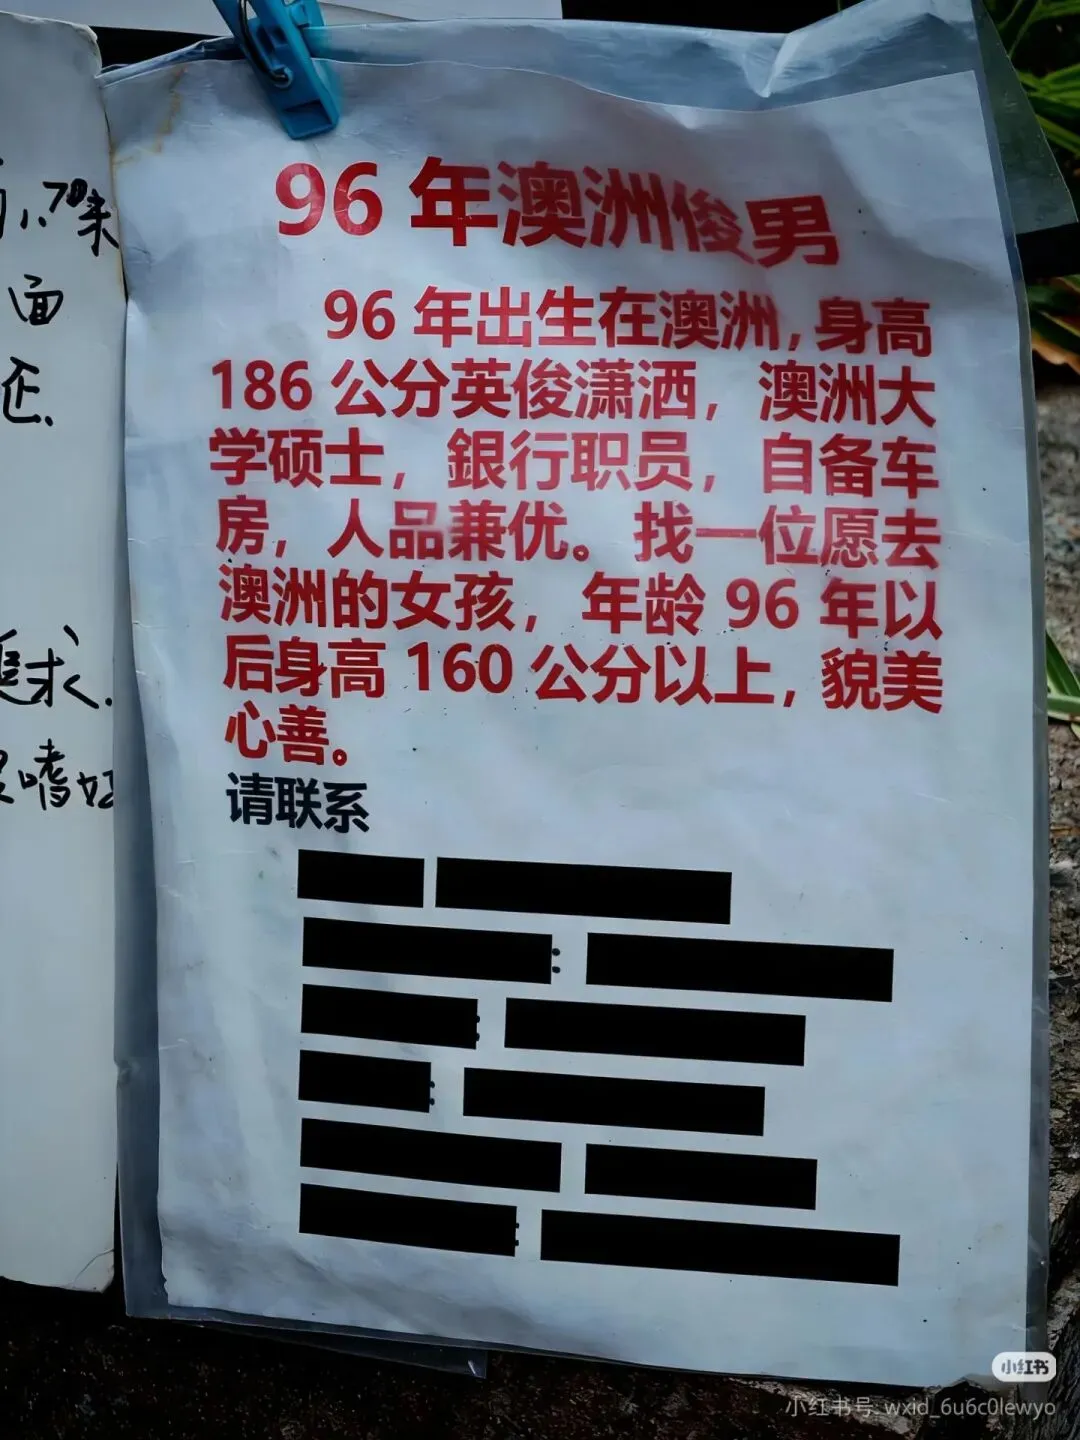 面
求.
嗜好
96 年澳洲俊男
96 年出生在澳洲，身高
186 公分英俊潇洒，澳洲大
学硕士，銀行职员，自备车
房，人品兼优。找一位愿去
澳洲的女孩，年龄 96 年以
后身高 160 公分以上，貌美
心善。
请联系
小红书
小红书号: wxid_6u6c0lewyo